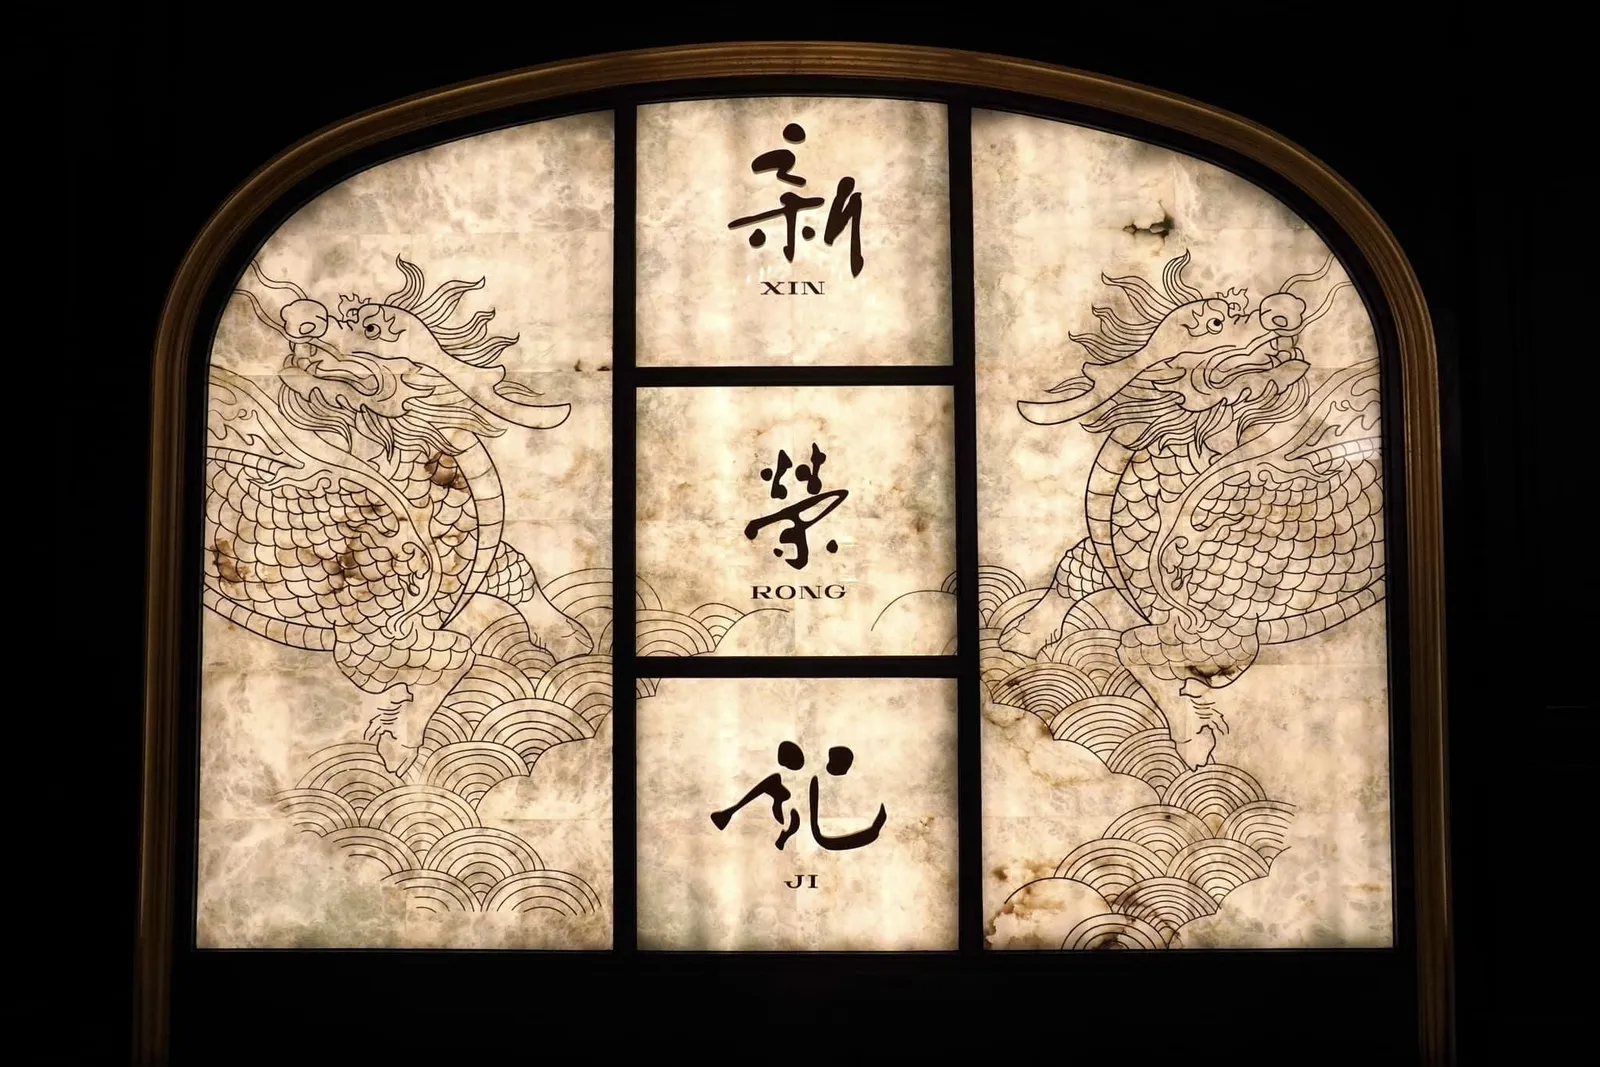 新
XIN
榮
RONG
记
JI